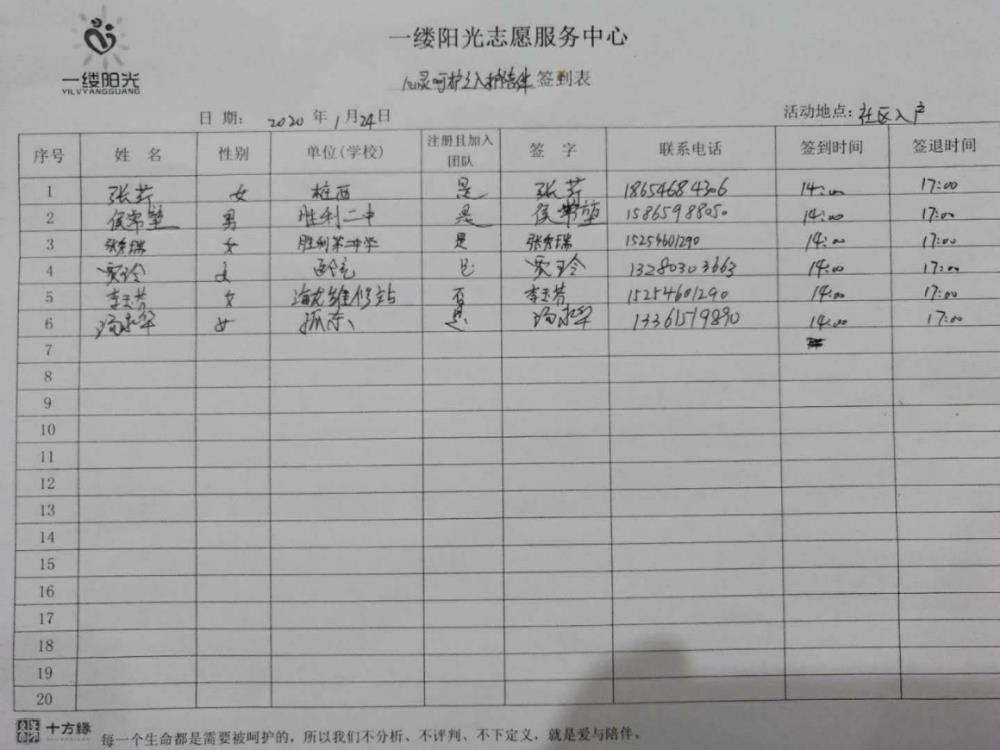 一缕阳光志愿服务中心
一缕阳光
YILVYANGGUANG
签到表
日 期: 2020 年 1 月 24 日 活动地点: 社区入户
序号 姓 名 性别 单位(学校) 注册且加入团队 签 字 联系电话 签到时间 签退时间
1 张芹 女 桩西 是 张芹 18654684306 14:00 17:00
2 侯常堃 男 胜利二中 是 侯常堃 15865988050 14:00 17:00
3 张秀瑞 女 胜利第二中学 是 张秀瑞 15254601290 14:00 17:00
4 贾玲 女 是 贾玲 13280303663 14:00 17:00
5 李玉芳 女 维修站 否 李玉芳 15254601290 14:00 17:00
6 女 孤东 是 13361519890 14:00 17:00
7
8
9
10
11
12
13
14
15
16
17
18
19
20
十方缘 每一个生命都是需要被呵护的，所以我们不分析、不评判、不下定义，就是爱与陪伴。